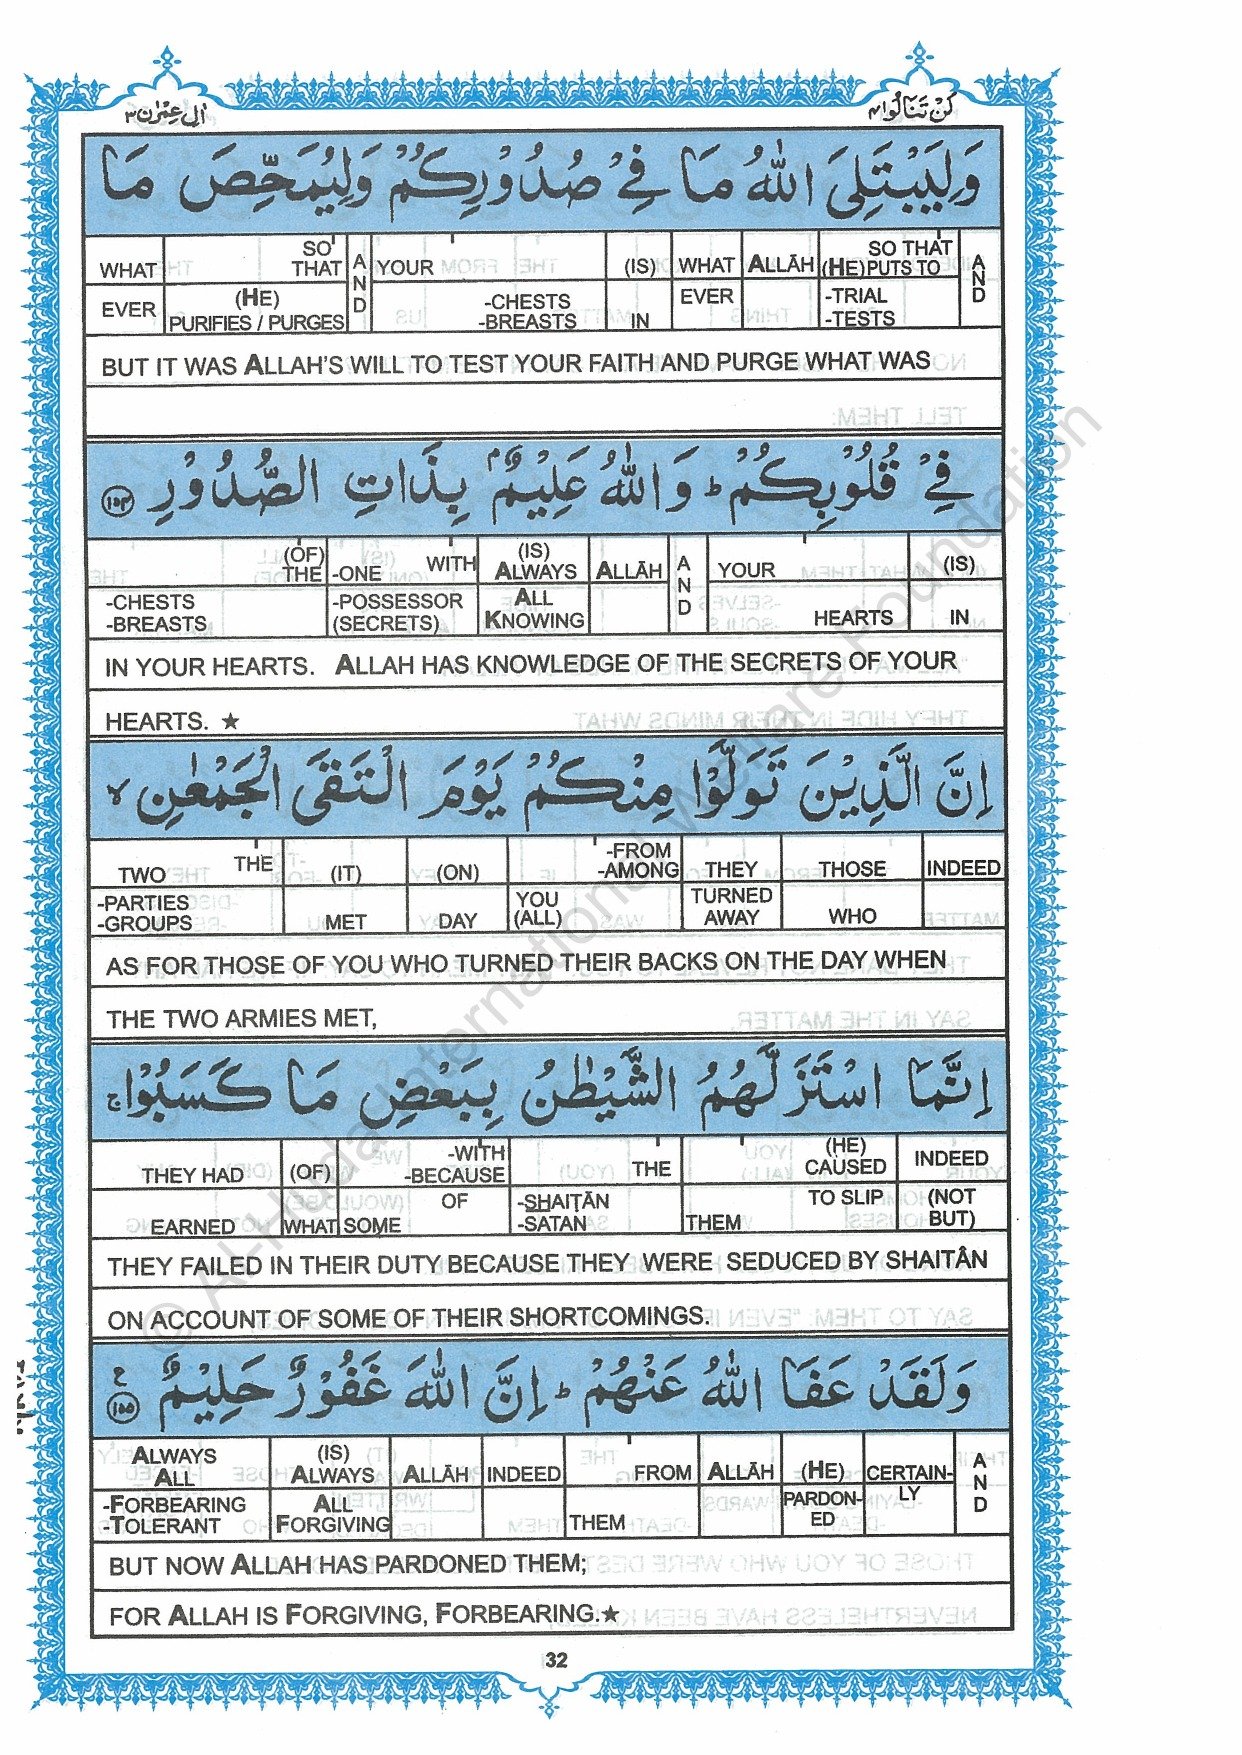 لَنْ تَنَالُوا۴
اٰلِ عِمْرٰن۳
وَلِيَبْتَلِىَ اللّٰهُ مَا فِىْ صُدُوْرِكُمْ وَلِيُمَحِّصَ مَا
WHAT SO THAT AND YOUR (IS) WHAT ALLĀH SO THAT (HE) PUTS TO AND
EVER (HE) PURIFIES / PURGES -CHESTS -BREASTS IN EVER -TRIAL -TESTS
BUT IT WAS ALLAH'S WILL TO TEST YOUR FAITH AND PURGE WHAT WAS
فِىْ قُلُوْبِكُمْ ؕ وَاللّٰهُ عَلِيْمٌۢ بِذَاتِ الصُّدُوْرِ ۝۱۵۴
(OF) THE -ONE WITH (IS) ALWAYS ALLĀH AND YOUR (IS)
-CHESTS -BREASTS -POSSESSOR (SECRETS) ALL KNOWING HEARTS IN
IN YOUR HEARTS. ALLAH HAS KNOWLEDGE OF THE SECRETS OF YOUR
HEARTS. ★
اِنَّ الَّذِيْنَ تَوَلَّوْا مِنْكُمْ يَوْمَ الْتَقَى الْجَمْعٰنِ ۙ
TWO THE (IT) (ON) -FROM -AMONG THEY THOSE INDEED
-PARTIES -GROUPS MET DAY YOU (ALL) TURNED AWAY WHO
AS FOR THOSE OF YOU WHO TURNED THEIR BACKS ON THE DAY WHEN
THE TWO ARMIES MET,
اِنَّمَا اسْتَزَلَّهُمُ الشَّيْطٰنُ بِبَعْضِ مَا كَسَبُوْا ۚ
THEY HAD (OF) -WITH -BECAUSE THE (HE) CAUSED INDEED
EARNED WHAT SOME OF -SHAIṬĀN -SATAN THEM TO SLIP (NOT BUT)
THEY FAILED IN THEIR DUTY BECAUSE THEY WERE SEDUCED BY SHAITÂN
ON ACCOUNT OF SOME OF THEIR SHORTCOMINGS.
وَلَقَدْ عَفَا اللّٰهُ عَنْهُمْ ؕ اِنَّ اللّٰهَ غَفُوْرٌ حَلِيْمٌ ۝۱۵۵ ع
ALWAYS ALL (IS) ALWAYS ALLĀH INDEED FROM ALLĀH (HE) CERTAIN- AND
-FORBEARING -TOLERANT ALL FORGIVING THEM PARDON-ED LY
BUT NOW ALLAH HAS PARDONED THEM;
FOR ALLAH IS FORGIVING, FORBEARING.★
32
© Al-Huda International Welfare Foundation